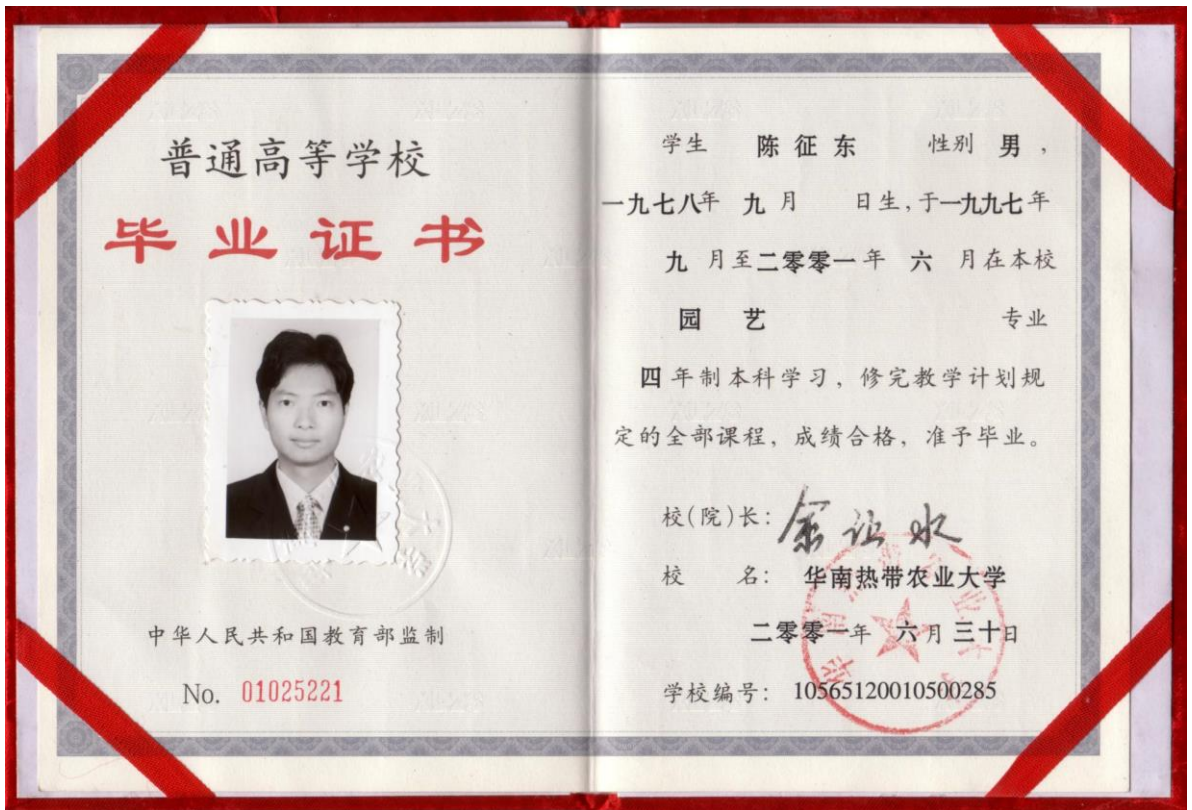 普通高等学校
毕业证书
中华人民共和国教育部监制
No. 01025221
学生 陈征东 性别 男，
一九七八年 九月 日生，于一九九七年
九 月至二零零一年 六 月在本校
园艺 专业
四年制本科学习，修完教学计划规
定的全部课程，成绩合格，准予毕业。
校(院)长：
校 名： 华南热带农业大学
二零零一年 六月三十日
学校编号： 10565120010500285